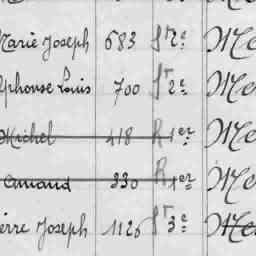 Marie Joseph 683 St 2e Me
lphonse Louis 700 St 2e Me
Michel 418 R 1er Me
Amand 330 R 1er Me
erre Joseph 1126 St 3e Me